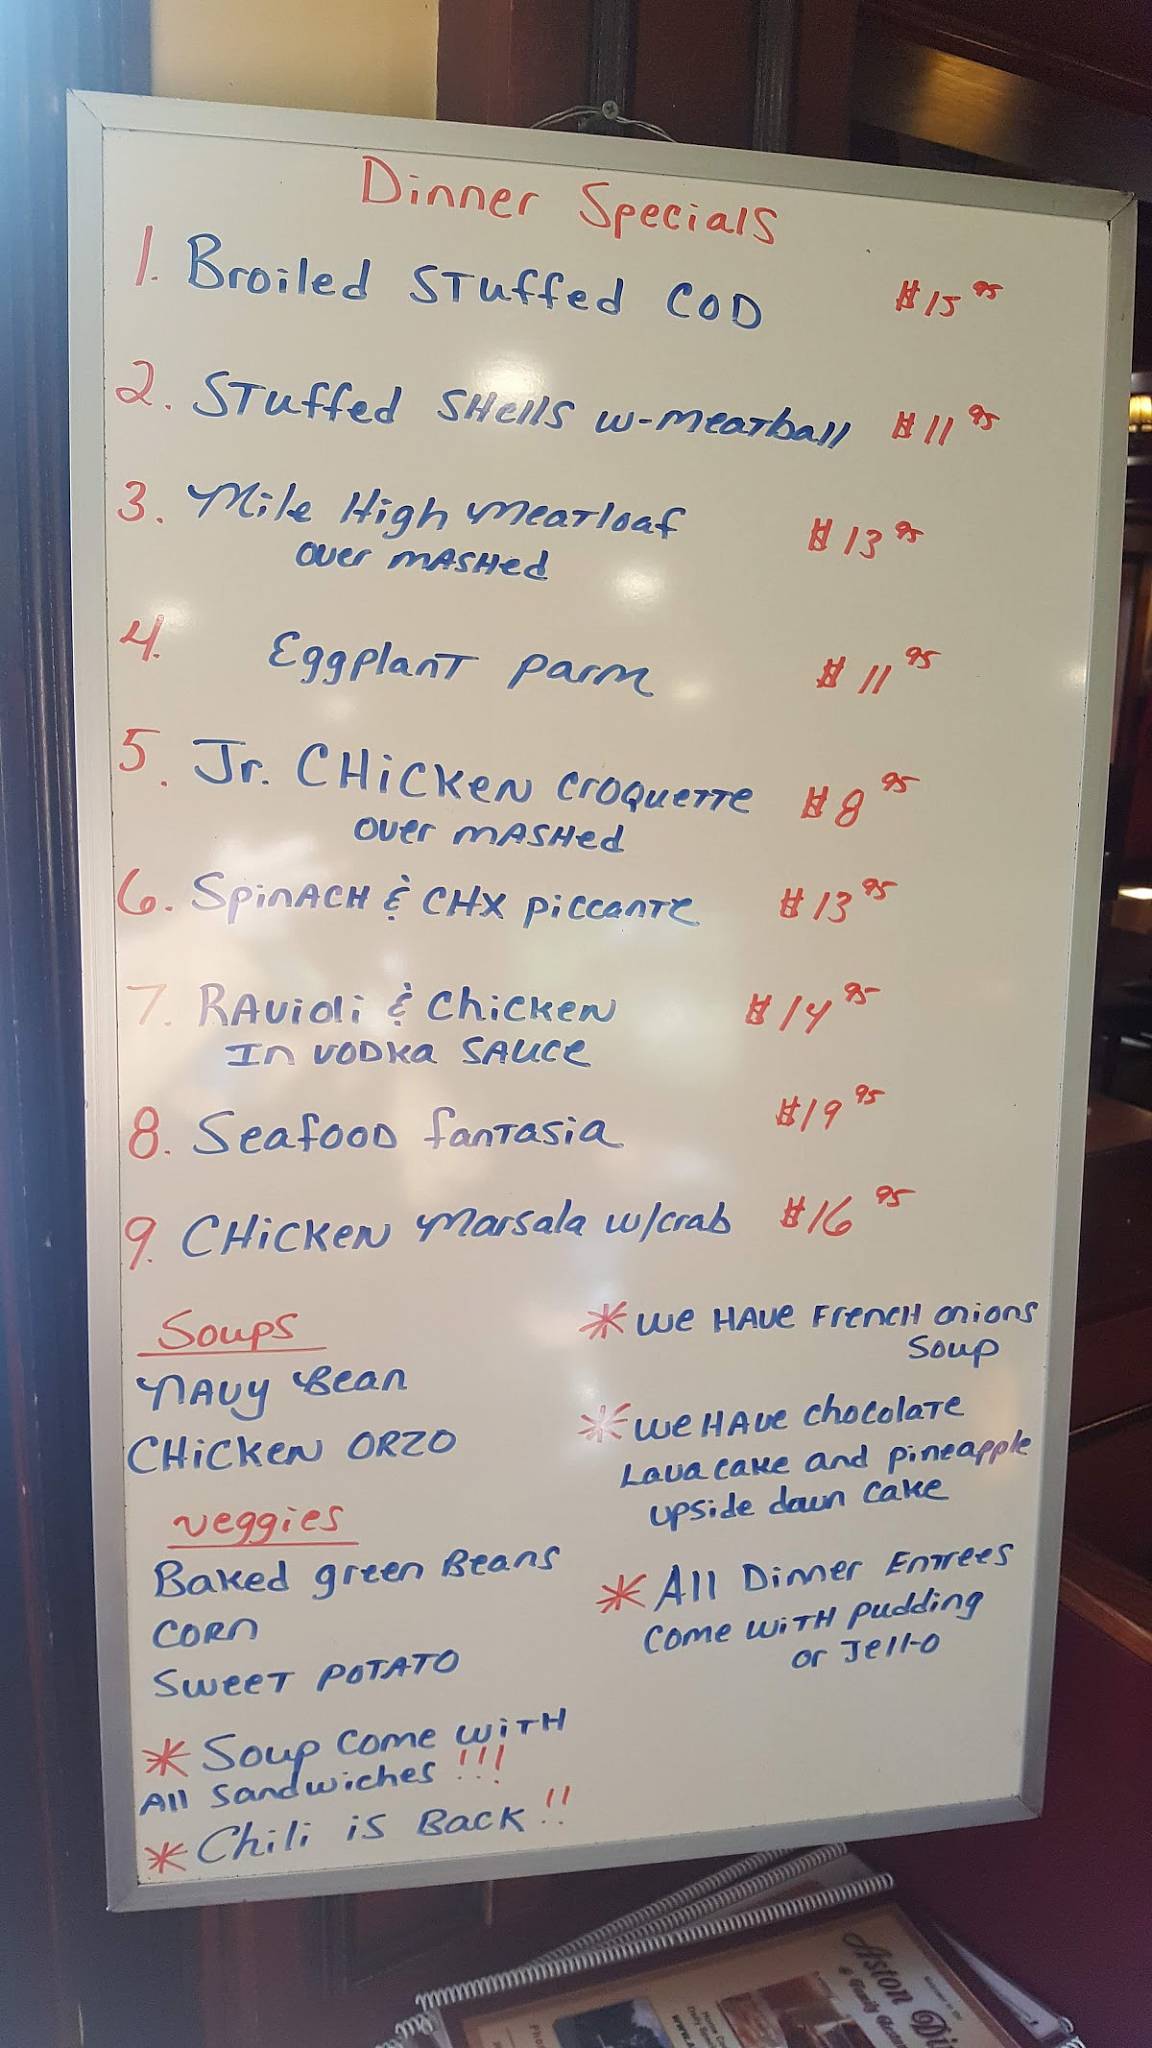 Dinner Specials
1. Broiled Stuffed COD $15 95
2. Stuffed Shells w-meatball $11 95
3. Mile High Meatloaf $13 95
over mashed
4. Eggplant parm $11 95
5. Jr. Chicken croquette $8 95
over mashed
6. Spinach & CHX piccante $13 95
7. Ravioli & Chicken $14 95
In vodka sauce
8. Seafood fantasia $19 95
9. Chicken Marsala w/crab $16 95
Soups
Navy Bean
Chicken Orzo
veggies
Baked green Beans
Corn
Sweet potato
* Soup come with
All Sandwiches !!!
* Chili is Back !!
* We have French onions
Soup
* We have chocolate
Lava cake and pineapple
upside down cake
* All Dinner Entrees
come with pudding
or Jell-o
Aston Di
& Family